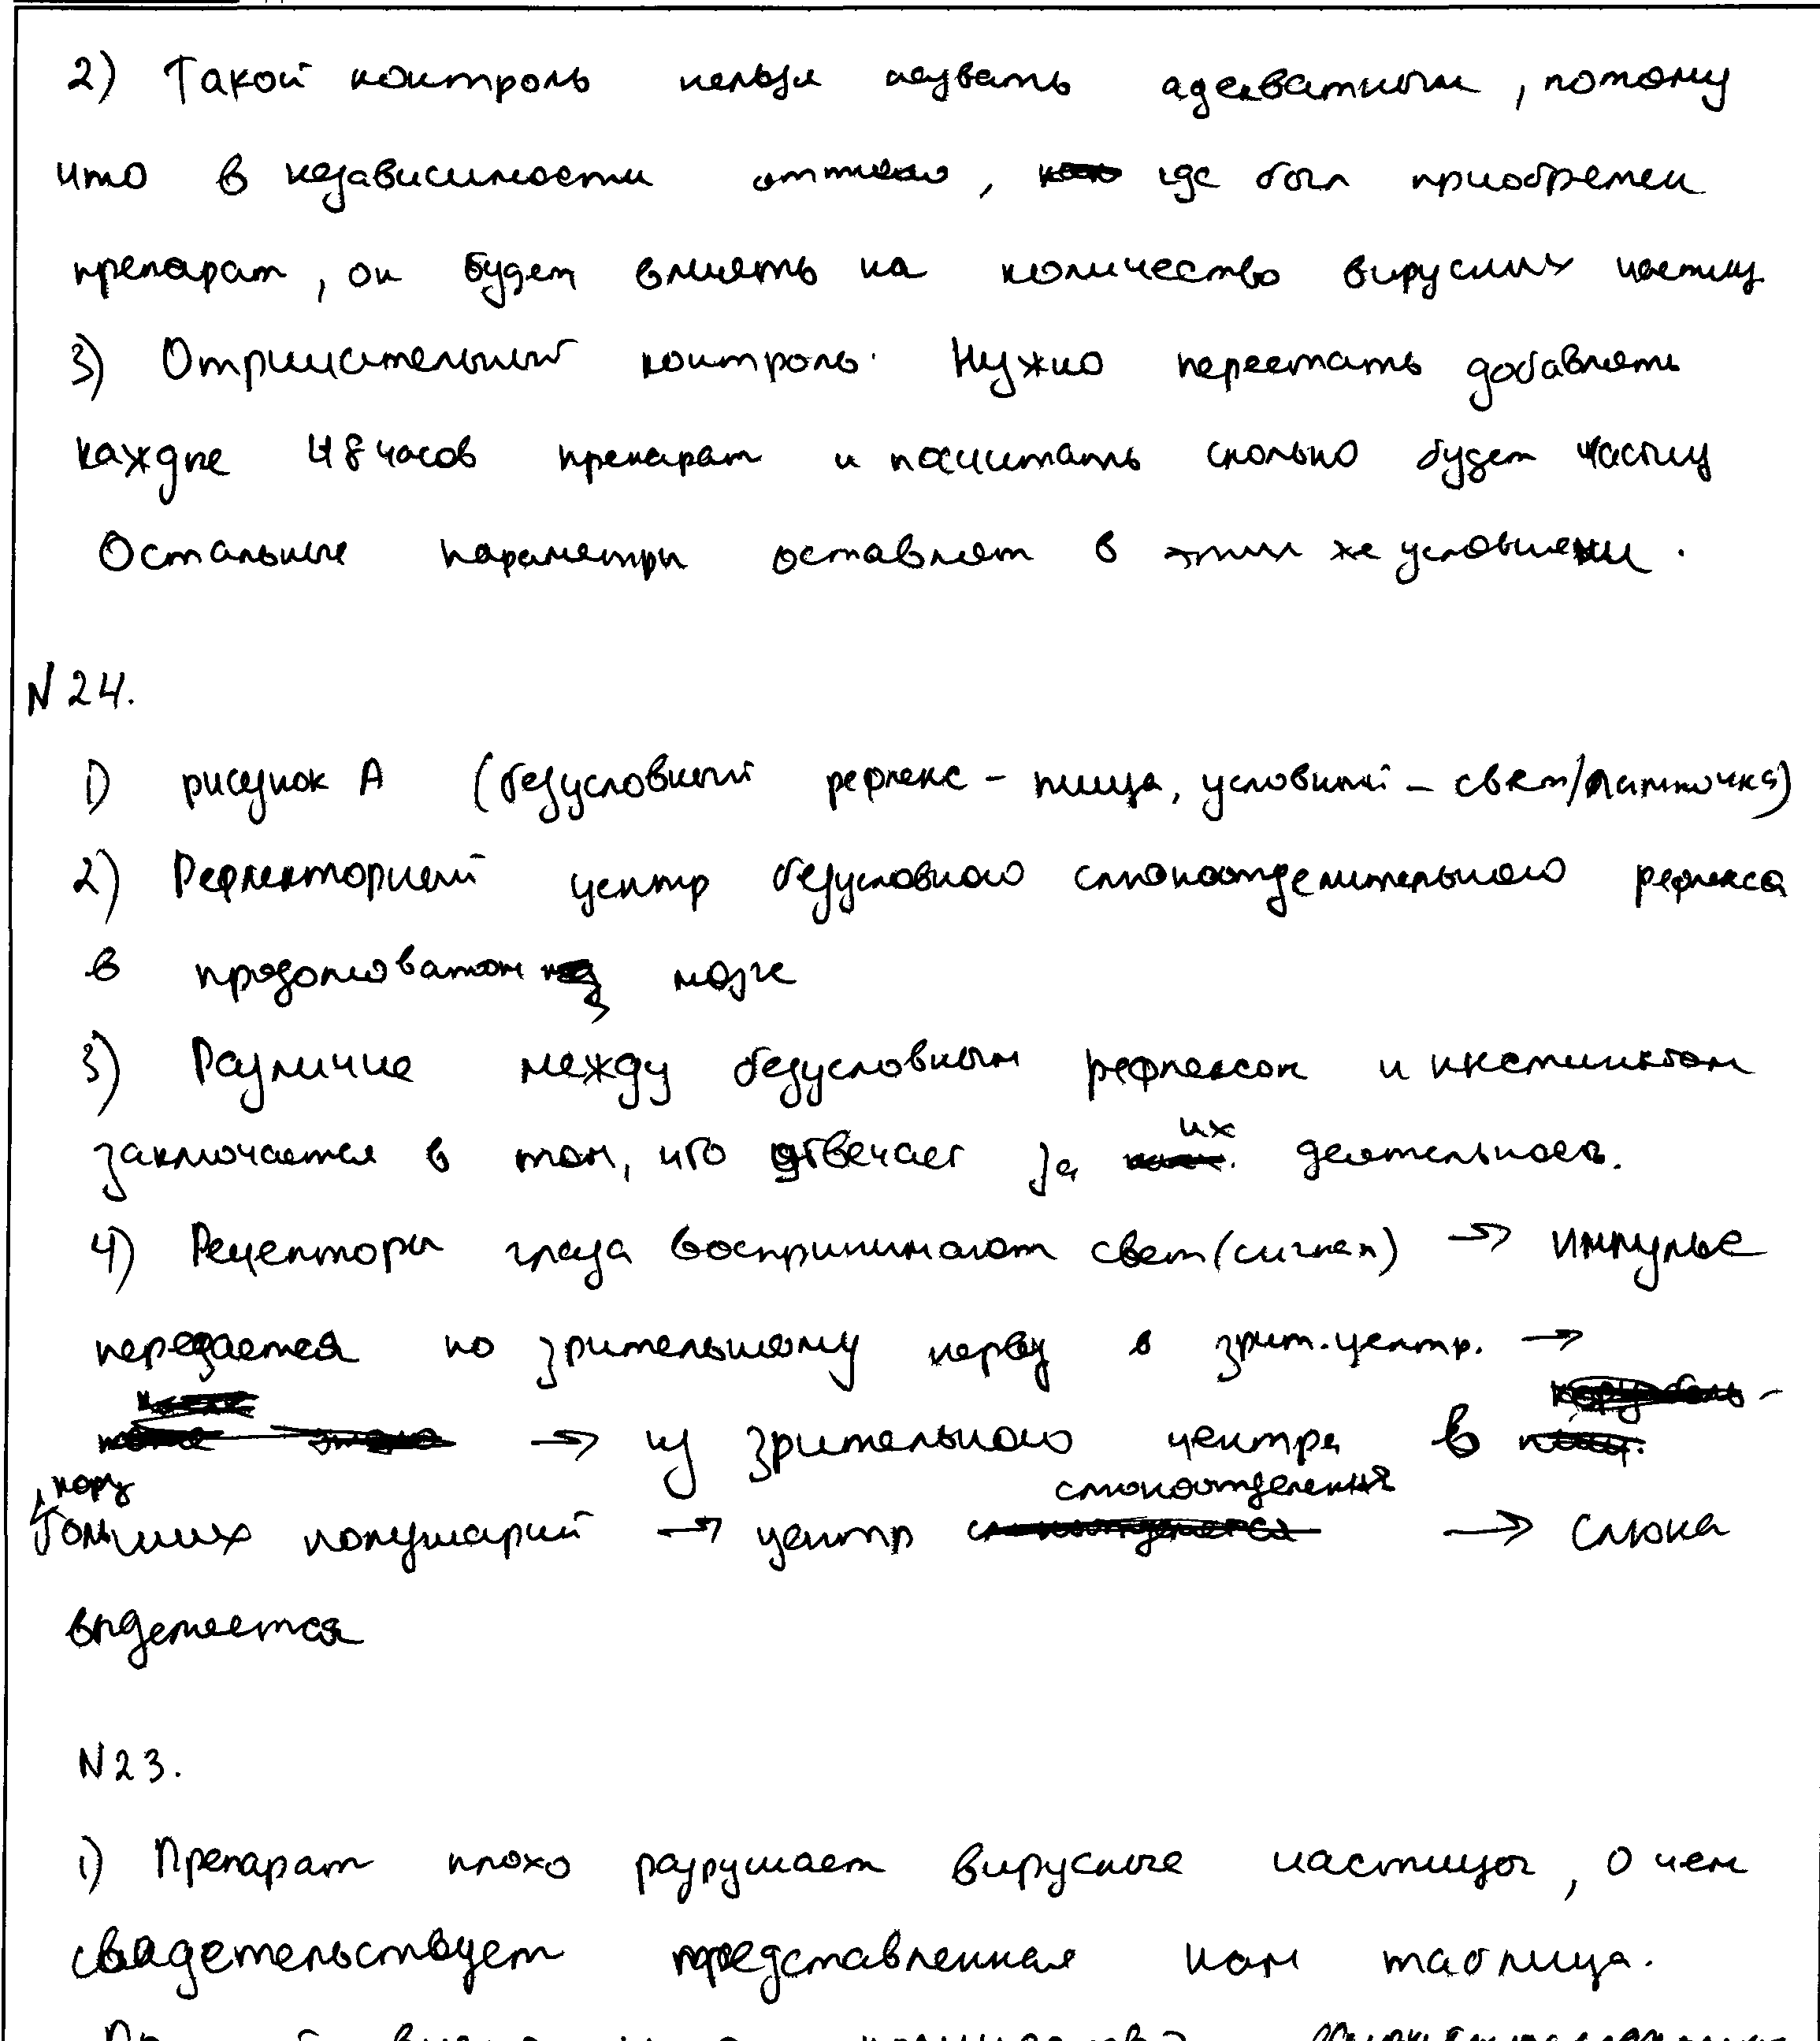 2) Такой контроль нельзя назвать адекватным, потому
что в независимости от того, где был приобретен
препарат, он будет влиять на количество вирусных частиц
3) Отрицательный контроль. Нужно перестать добавлять
каждые 48 часов препарат и посчитать сколько будет частиц
Остальные параметры оставляют в этих же условиях.
N 24.
1) рисунок А (безусловный рефлекс - пища, условный - свет/лампочка)
2) Рефлекторный центр безусловного слюноотделительного рефлекса
в продолговатом мозге
3) Различие между безусловным рефлексом и инстинктом
заключается в том, что отвечает за их деятельность.
4) Рецепторы глаза воспринимают свет (сигнал) → импульс
передается по зрительному нерву в зрит. центр. →
→ из зрительного центра в
кору больших полушарий → центр слюноотделения → слюна
выделяется
N 23.
1) Препарат плохо разрушает вирусные частицы, о чем
свидетельствует представленная нам таблица.